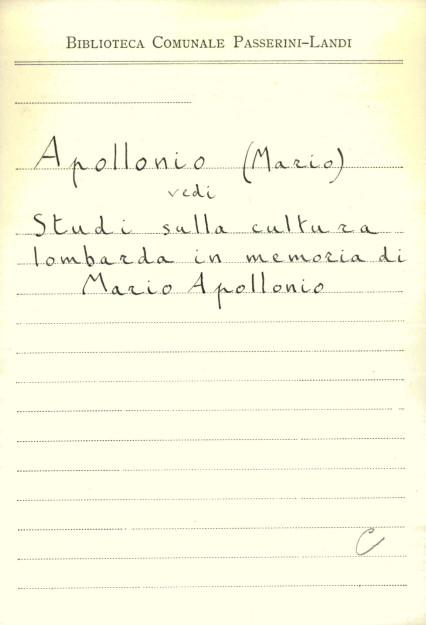 BIBLIOTECA COMUNALE PASSERINI-LANDI
Apollonio (Mario)
vedi
Studi sulla cultura
lombarda in memoria di
Mario Apollonio
C